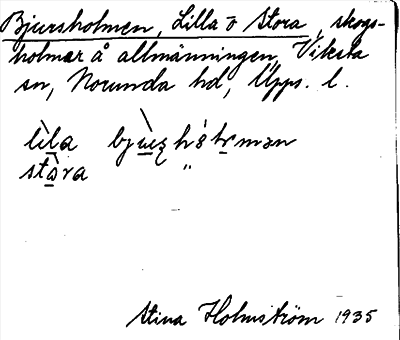 Bjursholmen, Lilla o Stora, skogs-
holmar å allmänningen, Viksta
sn, Norunda hd, Upps. l.
stina Holmström 1935